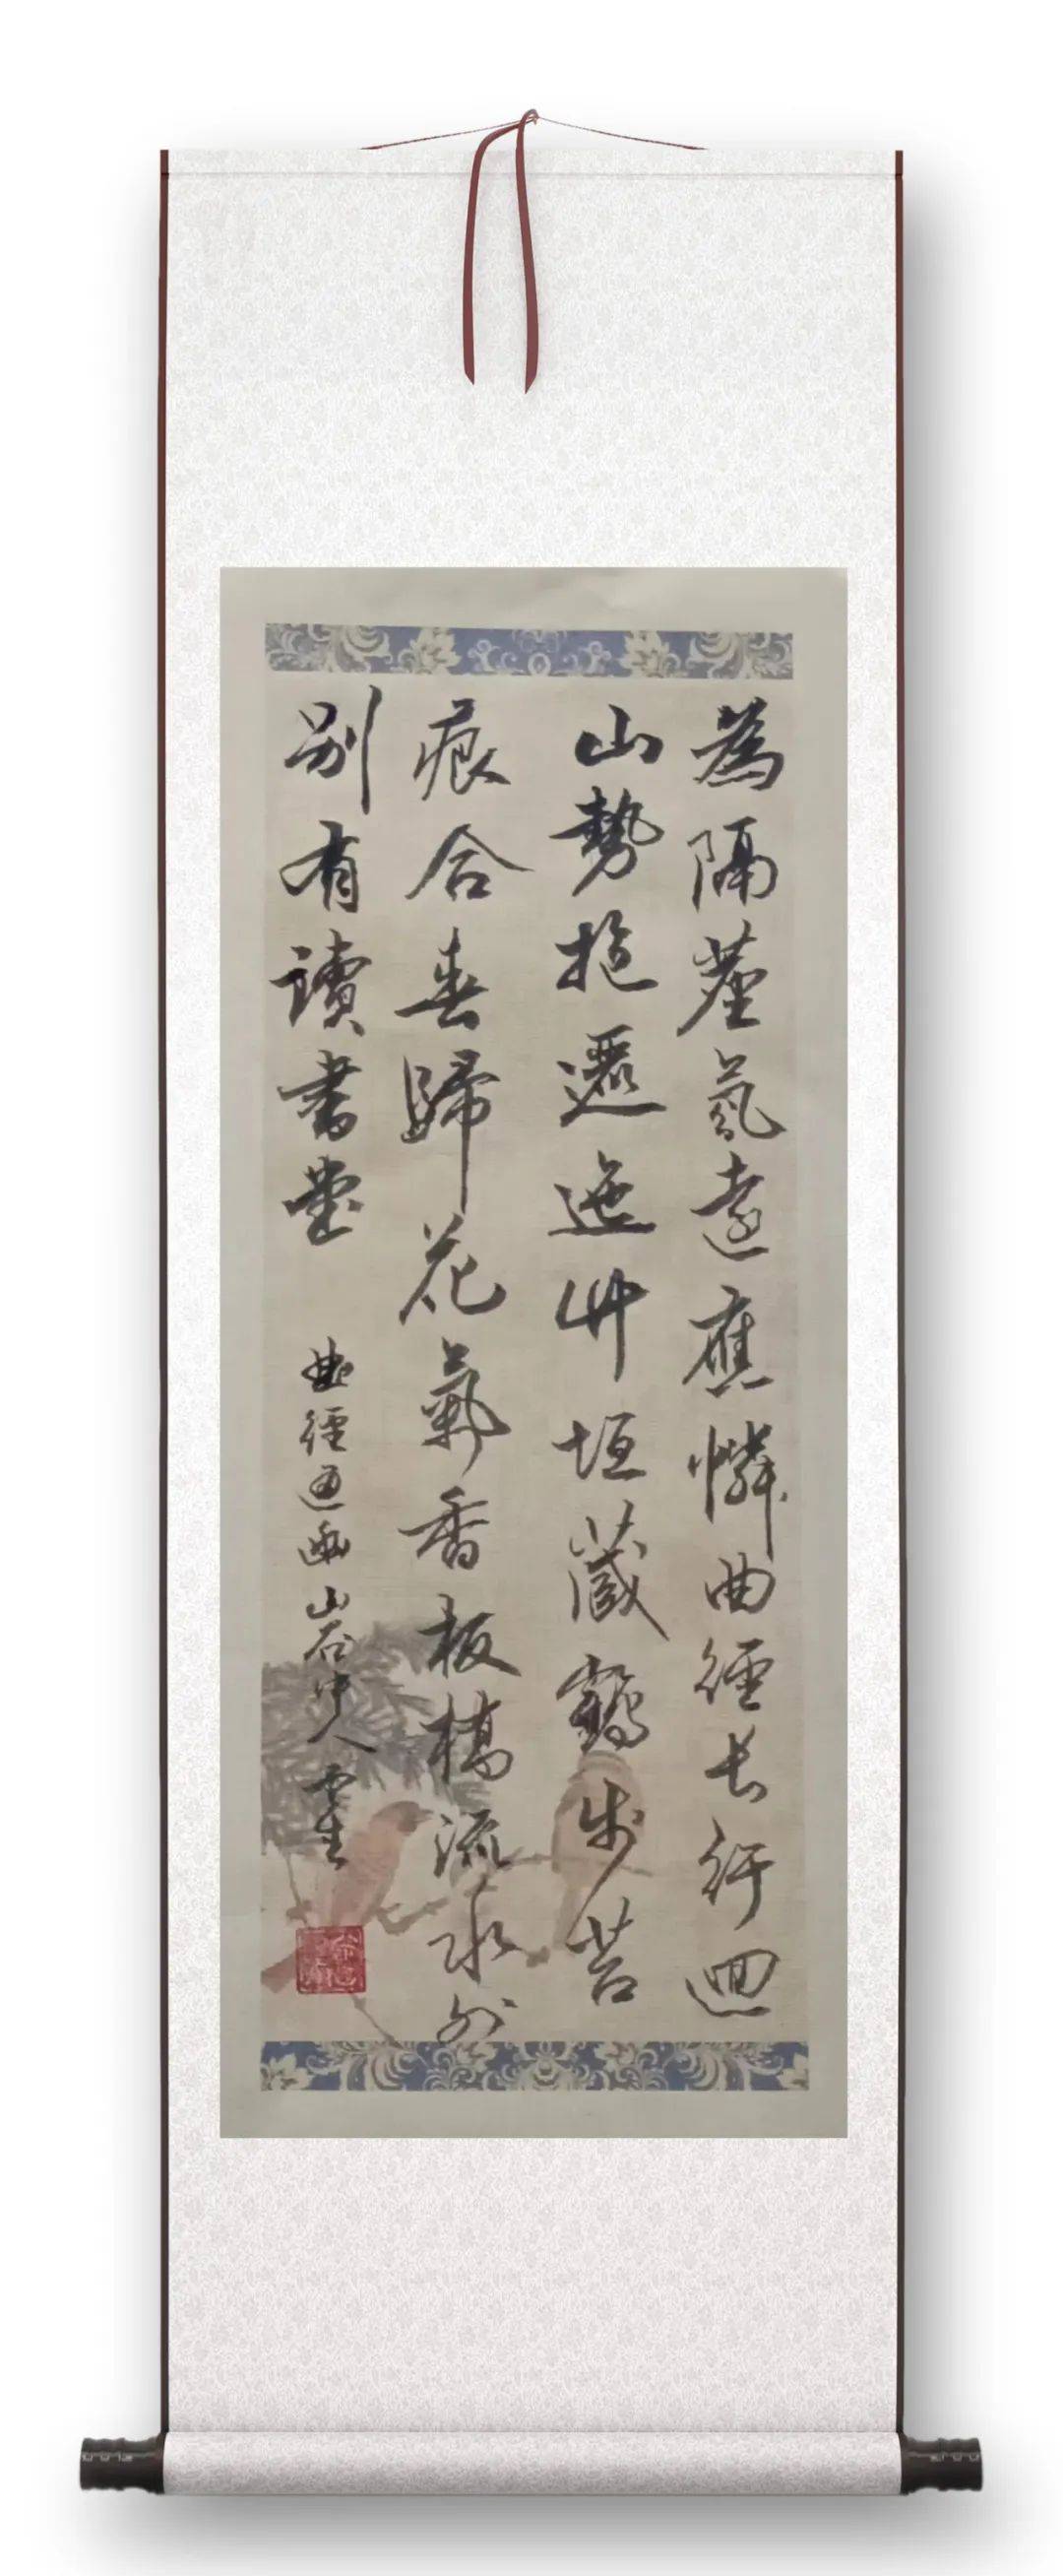 為隔塵氛遠應憐曲徑長行迴
山勢抱邐迤艸垣藏鶴步苔
痕合春歸花氣香板橋流水外
別有讀書堂
曲徑通幽山谷中人雲生